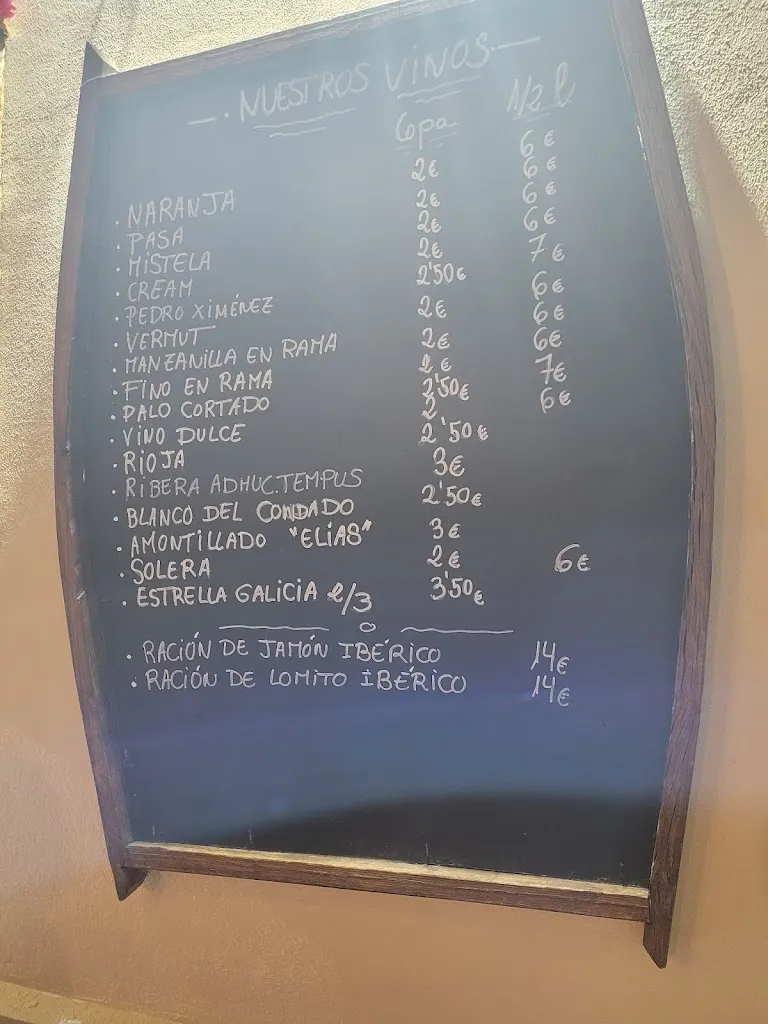 —. NUESTROS VINOS.—
Copa 1/2 l
. NARANJA 2€ 6€
. PASA 2€ 6€
. MISTELA 2€ 6€
. CREAM 2€ 6€
. PEDRO XIMÉNEZ 2'50€ 7€
. VERMUT 2€ 6€
. MANZANILLA EN RAMA 2€ 6€
. FINO EN RAMA 2€ 6€
. PALO CORTADO 2'50€ 7€
. VINO DULCE 2 6€
. RIOJA 2'50€
. RIBERA ADHUC.TEMPUS 3€
. BLANCO DEL CONDADO 2'50€
. AMONTILLADO "ELIAS" 3€
. SOLERA 2€ 6€
. ESTRELLA GALICIA 2/3 3'50€
. RACIÓN DE JAMÓN IBÉRICO 14€
. RACIÓN DE LOMITO IBÉRICO 14€